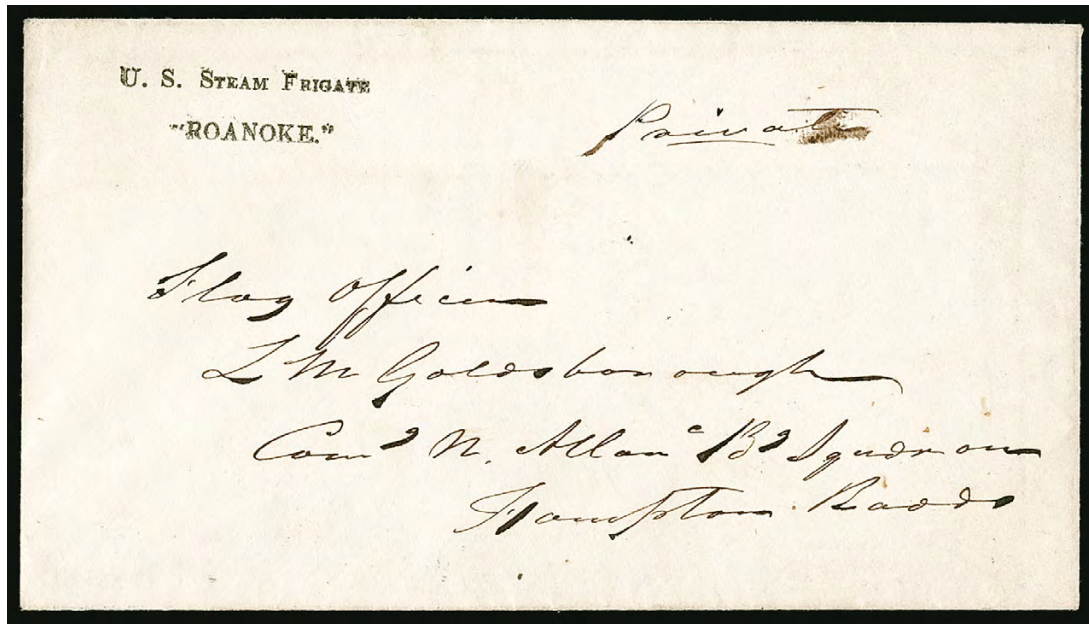 U. S. STEAM FRIGATE
"ROANOKE."
Private
Flag Officer
L M Goldsborough
Comd N. Atlanc Bd Squadron
Hampton Roads